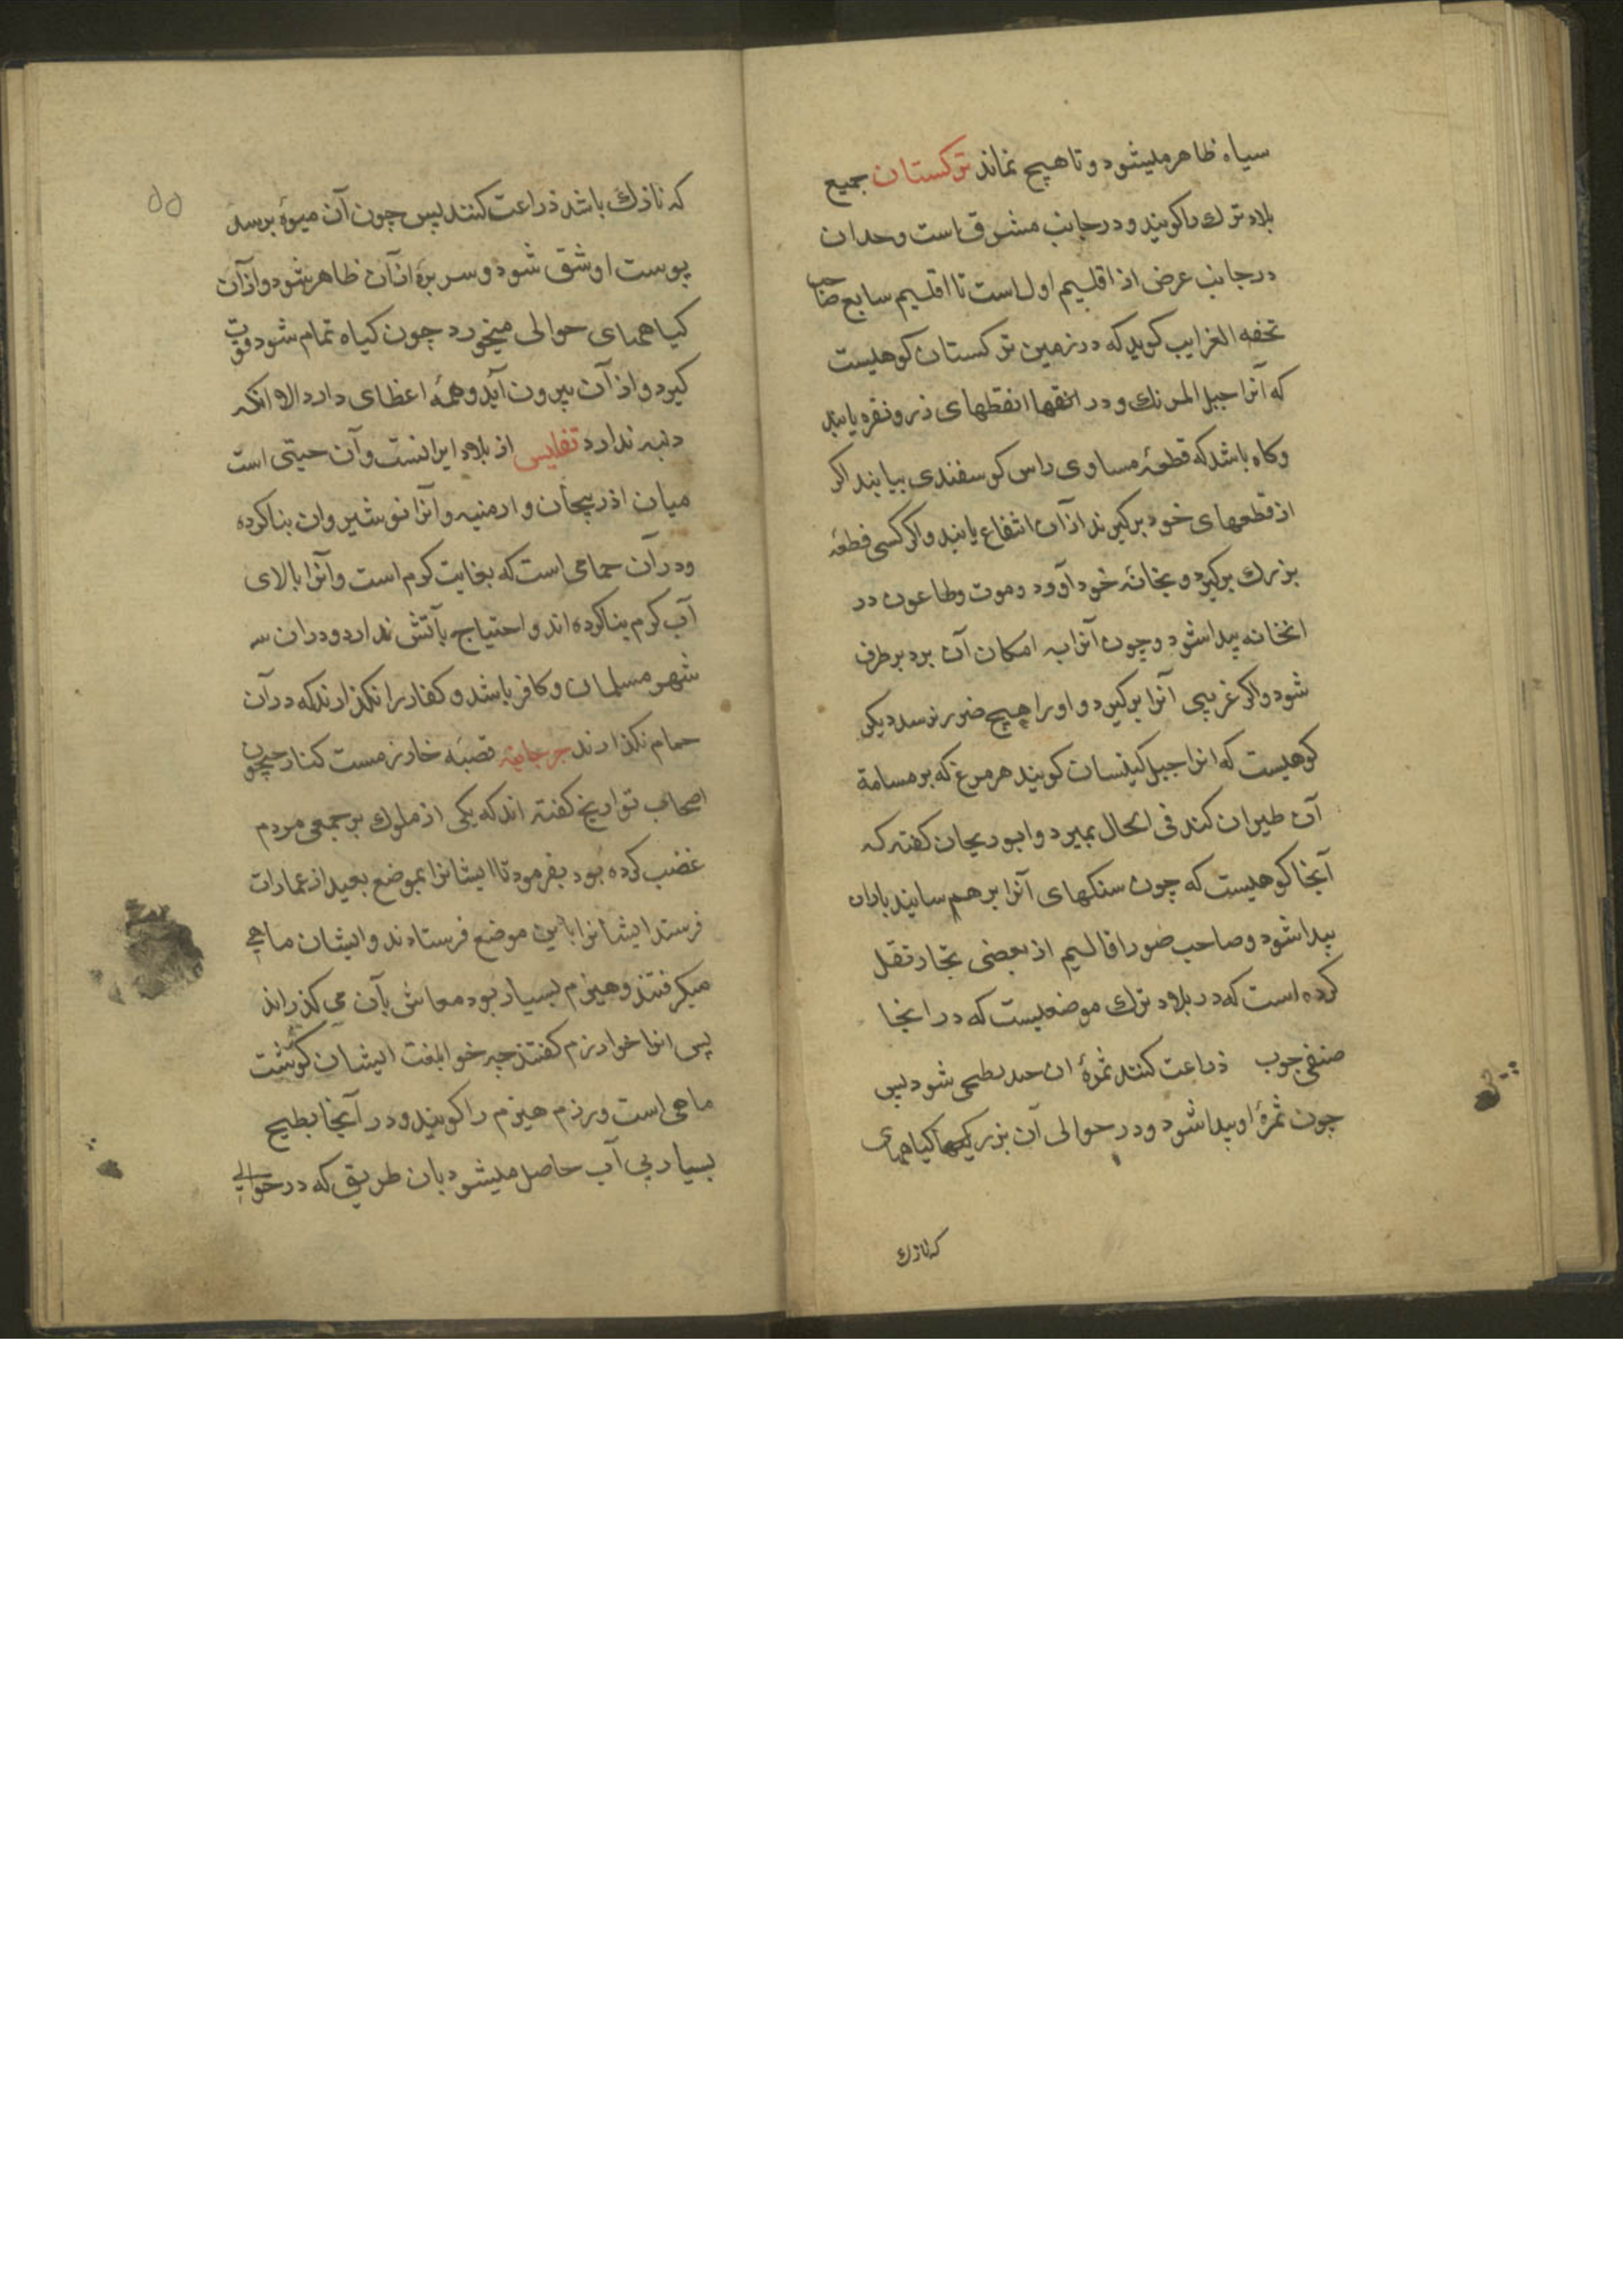 سیاه ظاهر میشود و تا هیچ نماند ترکستان جمیع
بلاد ترک را کویند و در جانب مشرق است و حد ان
در جانب عرض از اقلیم اول است تا اقلیم سابع صاحب
تحفه الغرایب کوید که در زمین ترکستان کوهیست
که آنرا جبل المرنک و در انقطهای زر و نقره یابند
و کاه باشد که قطعهٔ مساوی راس کوسفندی بیابند اکر
از قطعهای خود برکیرند از آن انتفاع یابند و اکر کسی قطعهٔ
بزرک برکیرد و بخانهٔ خود آورد و موت و طاعون در
انخانه پیدا شود و چون آنرا به امکان آن برد برطرف
شود و اکر غریبی آنرا برکیرد و او را هیچ ضرر نرسد دیکر
کوهیست که انرا جبل کیلسان کویند هر مرغ که بر مسامة
آن طیران کند فی الحال بمیرد و ابوریحان کفته که
آنجا کوهیست که چون سنکهای آنرا بر هم سایند باران
پیدا شود و صاحب صور اقالیم از بعضی تجار نقل
کرده است که در بلاد ترک موضعیست که در انجا
صنفی حبوب ذراعت کنند ثمرهٔ ان بطیخی شود پس
چون ثمرهٔ او پیدا شود و در حوالی آن کیاههای
که نازک
۵۵
که نازک باشد ذراعت کنند پس چون آن میوه برسد
پوست او شق شود و سر برهٔ از آن ظاهر شود و از آن
کیاههای حوالی میخورد چون کیاه تمام شود قوت
کیرد و از آن بیرون آید و همه اعظای دارد الا انکه
دنبه ندارد تفلیس از بلاد ایرانست و آن حیتی است
میان اذربیجان و ارمنیه و آنرا نوشیروان بنا کرده
و در آن حمامی است که بغایت کرم است و آنرا بالای
آب کرم بنا کرده اند و احتیاج بآتش ندارد و در ان سه
شهر مسلمان و کافر باشد و کفار را نکذارند که در آن
حمام نکذارند جرجانیه قصبهٔ خارزمست کنار جیحون
اصحاب تواریخ کفته اند که یکی از ملوک بر جمعی مردم
غضب کرده بود بفرمود تا ایشانرا بموضع بعید از عمارات
فرستد ایشانرا باین موضع فرستادند و ایشان ماهی
میکرفتند و هیزم بسیار بود معاش بآن می کذراند
پس انرا خوارزم کفتند چه خوا بلغت ایشان کوشت
ماهی است و رزم هیزم را کویند و در آنجا بطیخ
بسیار بی آب حاصل میشود بان طریق که در حوالی